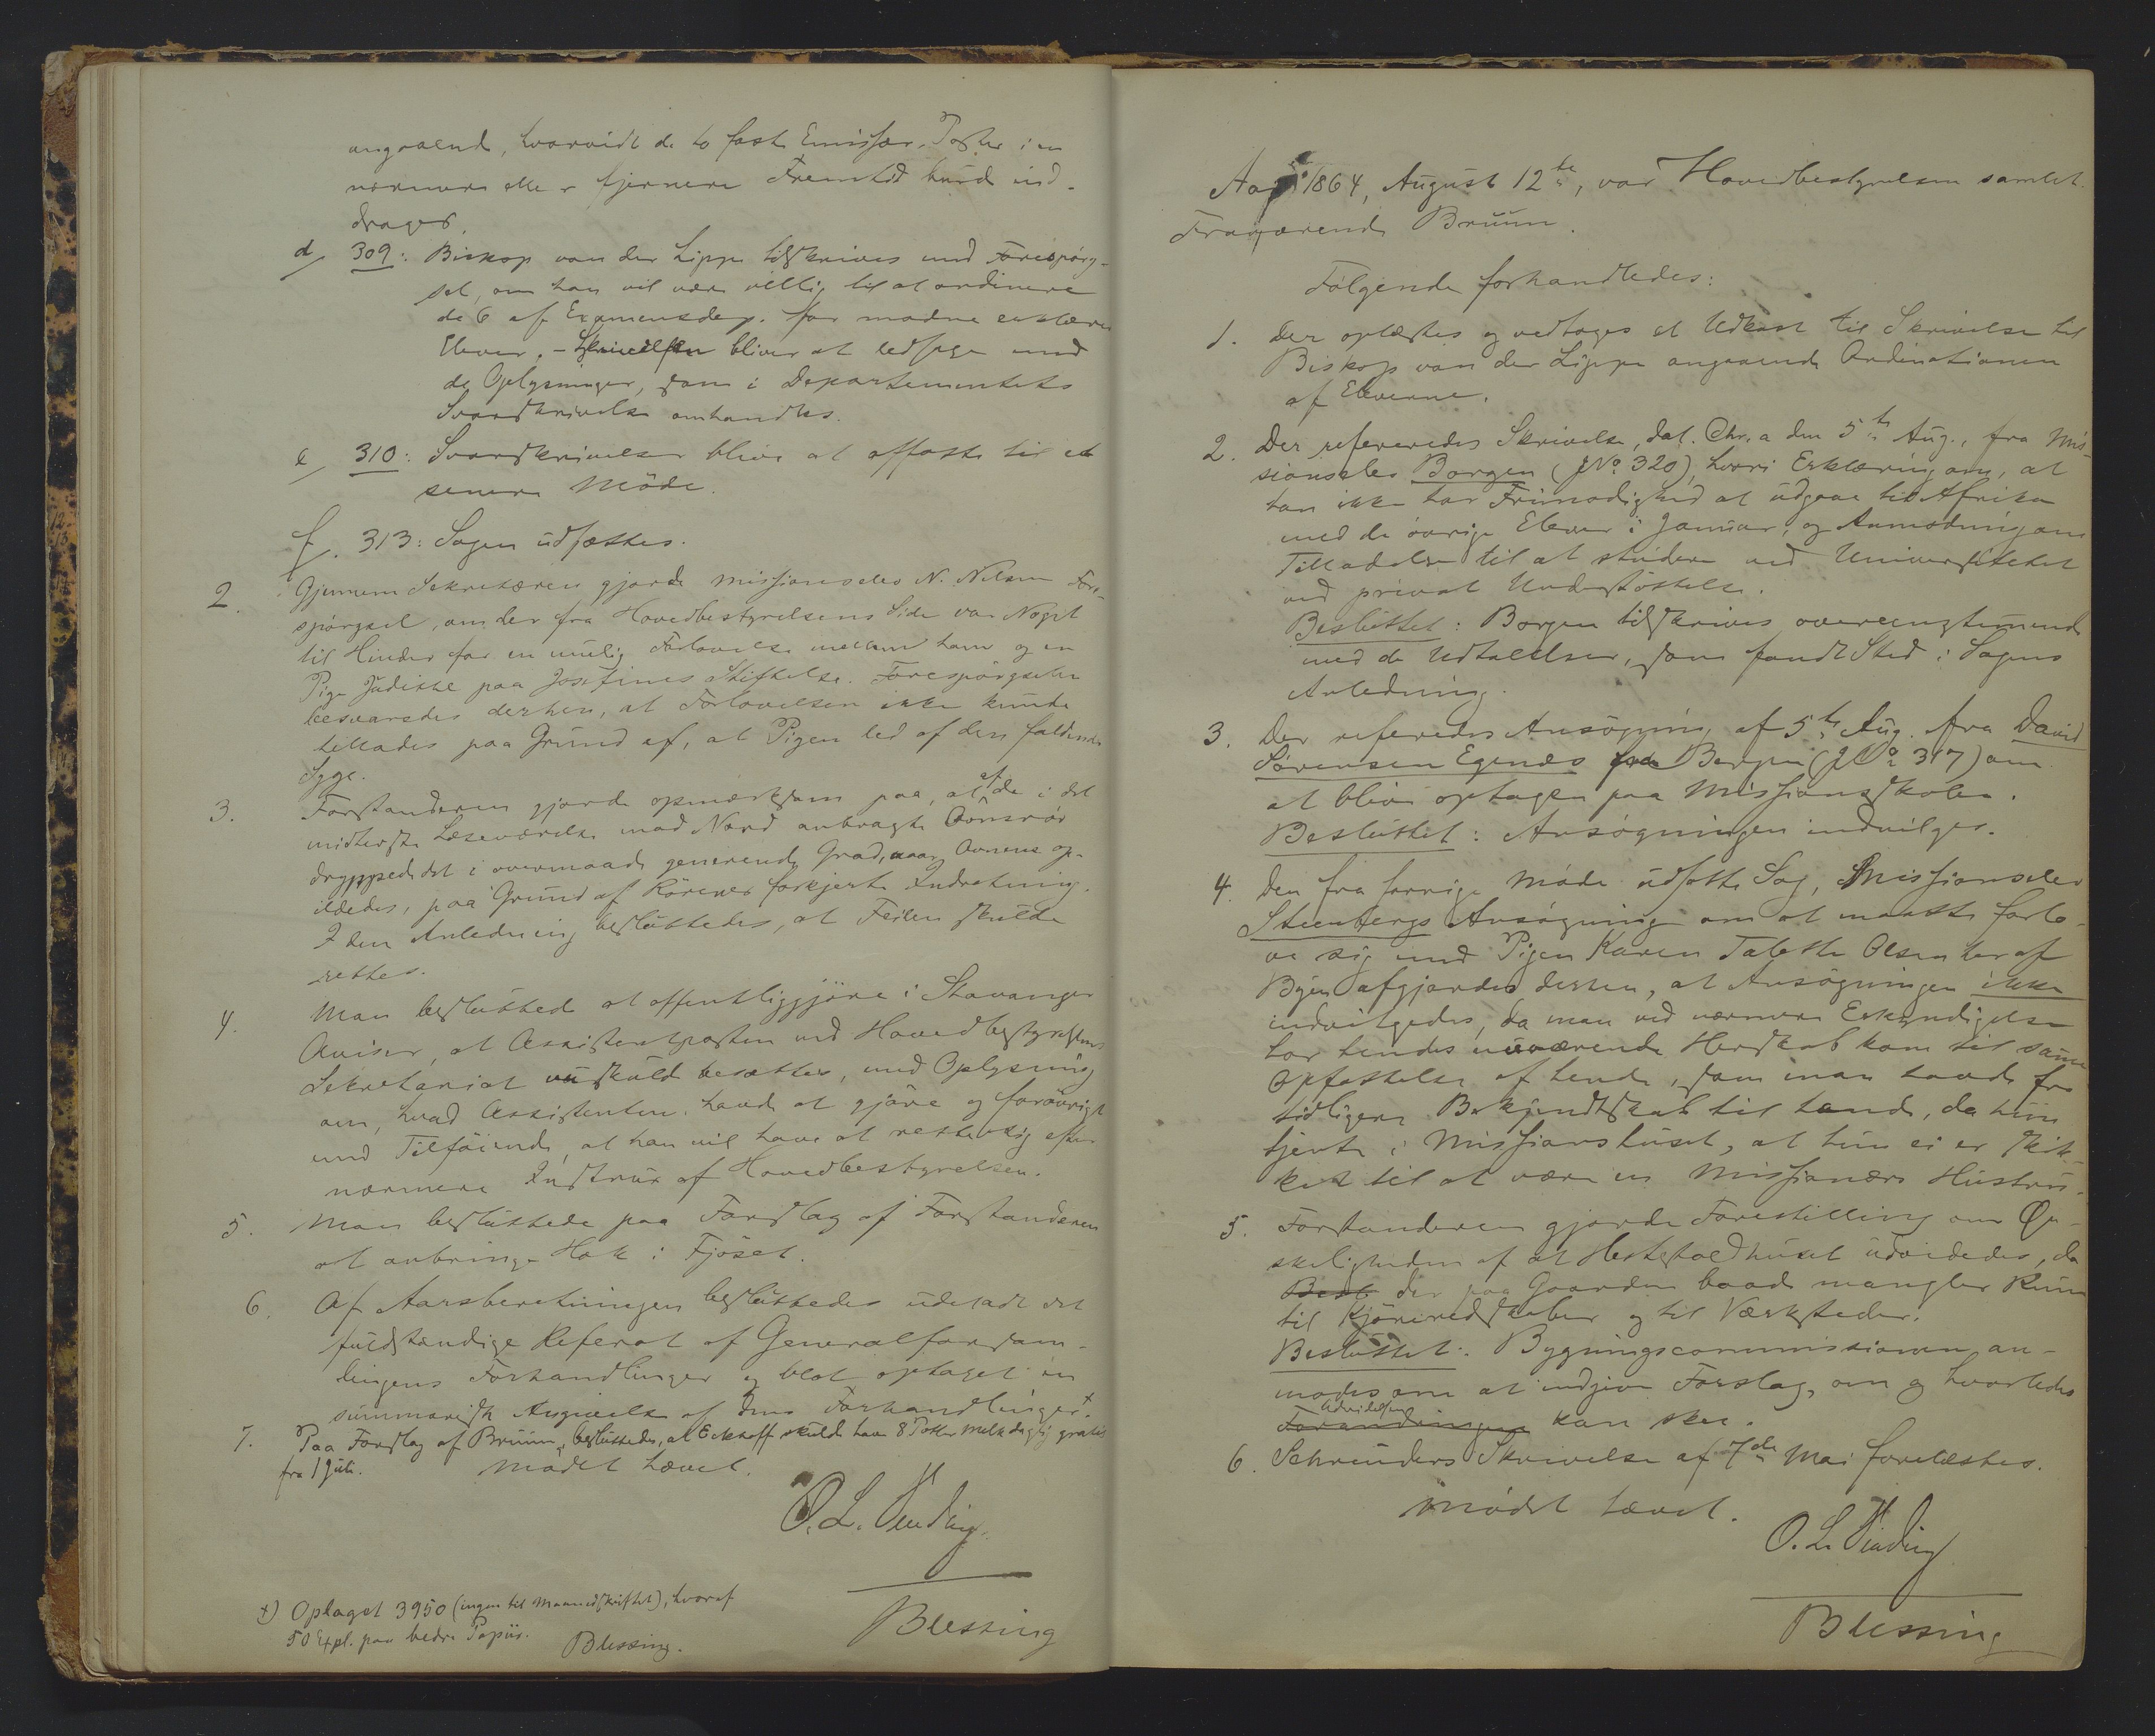 angaaende, hvorvidt de to faste Emissær-Poster i en
nærmere eller fjernere Fremtid kunde ind-
drages.
d/ 309: Biskop von der Lippe tilskrives med Forespørg-
sel, om han vil være villig til at ordinere
de 6 af Examensdep. for modne erklærede
Elever. – Skrivelsen bliver at ledsage med
de Oplysninger, som i Departementets
Svarskrivelse omhandles.
e/ 310: Svarskrivelse bliver at affatte til et
senere Möde.
f/. 313: Sagen udsættes.
2. Gjennem Sekretæren gjorde Missionselev N. Nilsen Fore-
spörgsel, om der fra Hovedbestyrelsens Side var Noget
til Hinder for en mulig Forlovelse mellem ham og en
Pige Judithe paa Josefines Stiftelse. Forespörgselen
besvaredes derhen, at Forlovelsen ikke kunde
tillades paa Grund af, at Pigen led af den faldende
Syge.
3. Forstanderen gjorde opmærksom paa, at af de i det
midterste Læseværelse mod Nord anbragte Ovnsrör
dryppede det i overmaade generende Grad, naar Ovnene op-
ildedes, paa Grund af Rörenes forkjerte Indretning.
I den Anledning besluttedes, at Feilen skulde
rettes.
4. Man besluttede at offentliggjöre i Stavanger
Aviser, at Assistentposten ved Hovedbestyrelsens
Sekretariat nu skuld besættes, med Oplysning
om, hvad Assistenten havde at gjöre og forövrigt
med Tilföiende, at han vil have at rette sig efter
nærmere Instrux af Hovedbestyrelsen.
5. Man besluttede paa Forslag af Forstanderen
at anbringe Hak i Fjöset.
6. Af Aarsberetningen besluttedes udeladt det
fuldstændige Referat af Generalforsam-
lingens Forhandlinger og blot optaget en
summarisk Angivelse af dens Forhandlinger +.
7. Paa Forslag af Bruun besluttedes, at Eckhoff skulde have 8 Potter Melk daglig gratis
fra 1 Juli. Mödet hævet.
O. L. Vinding.
Blessing
+) Oplaget 3950 (ingen til Maanedskriftet), hvoraf
50 Expl. paa bedre Papiir. Blessing.
Aar 1864, August 12te, var Hovedbestyrelsen samlet.
Fraværende Bruun.
Fölgende forhandledes:
1. Der oplæstes og vedtoges et Udkast til Skrivelse til
Biskop von der Lippe angaaende Ordinationen
af Eleverne.
2. Der refereredes Skrivelse, dat. Chr.a den 5te Aug., fra Mis-
sionselev Borgen (JNo 320), hvori Erklæring om, at
han ikke har Frimodighed at udgaae til Afrika
med de övrige Elever i Januar, og Anmodning om
Tilladelse til at studere ved Universitetet
ved privat Understöttelse.
Besluttet: Borgen tilskrives overensstemmende
med de Udtalelser, som fandt Sted i Sagens
Anledning.
3. Der refereredes Ansögning af 5te Aug. fra David
Sörensen Egenæs fra Bergen (JNo 317) om
at blive optagen paa Missionsskolen.
Besluttet: Ansögningen indvilges.
4. Den fra forrige Möde udsatte Sag, Missionselev
Steenbergs Ansögning om at maatte forlo-
ve sig med Pigen Karen Tabethe Olsen her af
Byen afgjordes derhen, at Ansögningen ikke
indvilgedes, da man ved nærmere Erkyndigelse
hos hendes nuværende Herskab kom til samme
Opfattelse af hende, som man havde fra
tidligere Bekjendtskab til hende, da hun
tjente i Missionshuset, at hun ei er skik-
ket til at være en Missionærs Hustru.
5. Forstanderen gjorde Forestilling om Ön-
skeligheden af at Hestestaldhuset udvidedes, da
Besl der paa Gaarden baade mangler Rum
til Kjöreredskaber og til Værksteder.
Besluttet: Bygningscommissionen an-
modes om at indgive Forslag, om og hvorledes
Forandringen Udvidelsen kan skee.
6. Schreuders Skrivelse af 7de Mai forelæstes.
Mödet hævet.
O. L. Vinding
Blessing